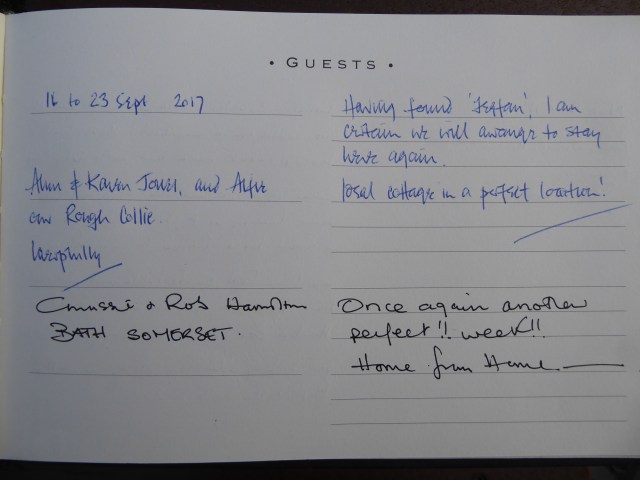 • GUESTS •
16 to 23 Sept 2017
Alun & Karen Jones, and Alfie
our Rough Collie.
Caerphilly
& Rob Hamilton
BATH SOMERSET.
Having found '', I am
certain we will arrange to stay
here again.
Ideal cottage in a perfect location!
Once again another
perfect!! week!!
Home from Home